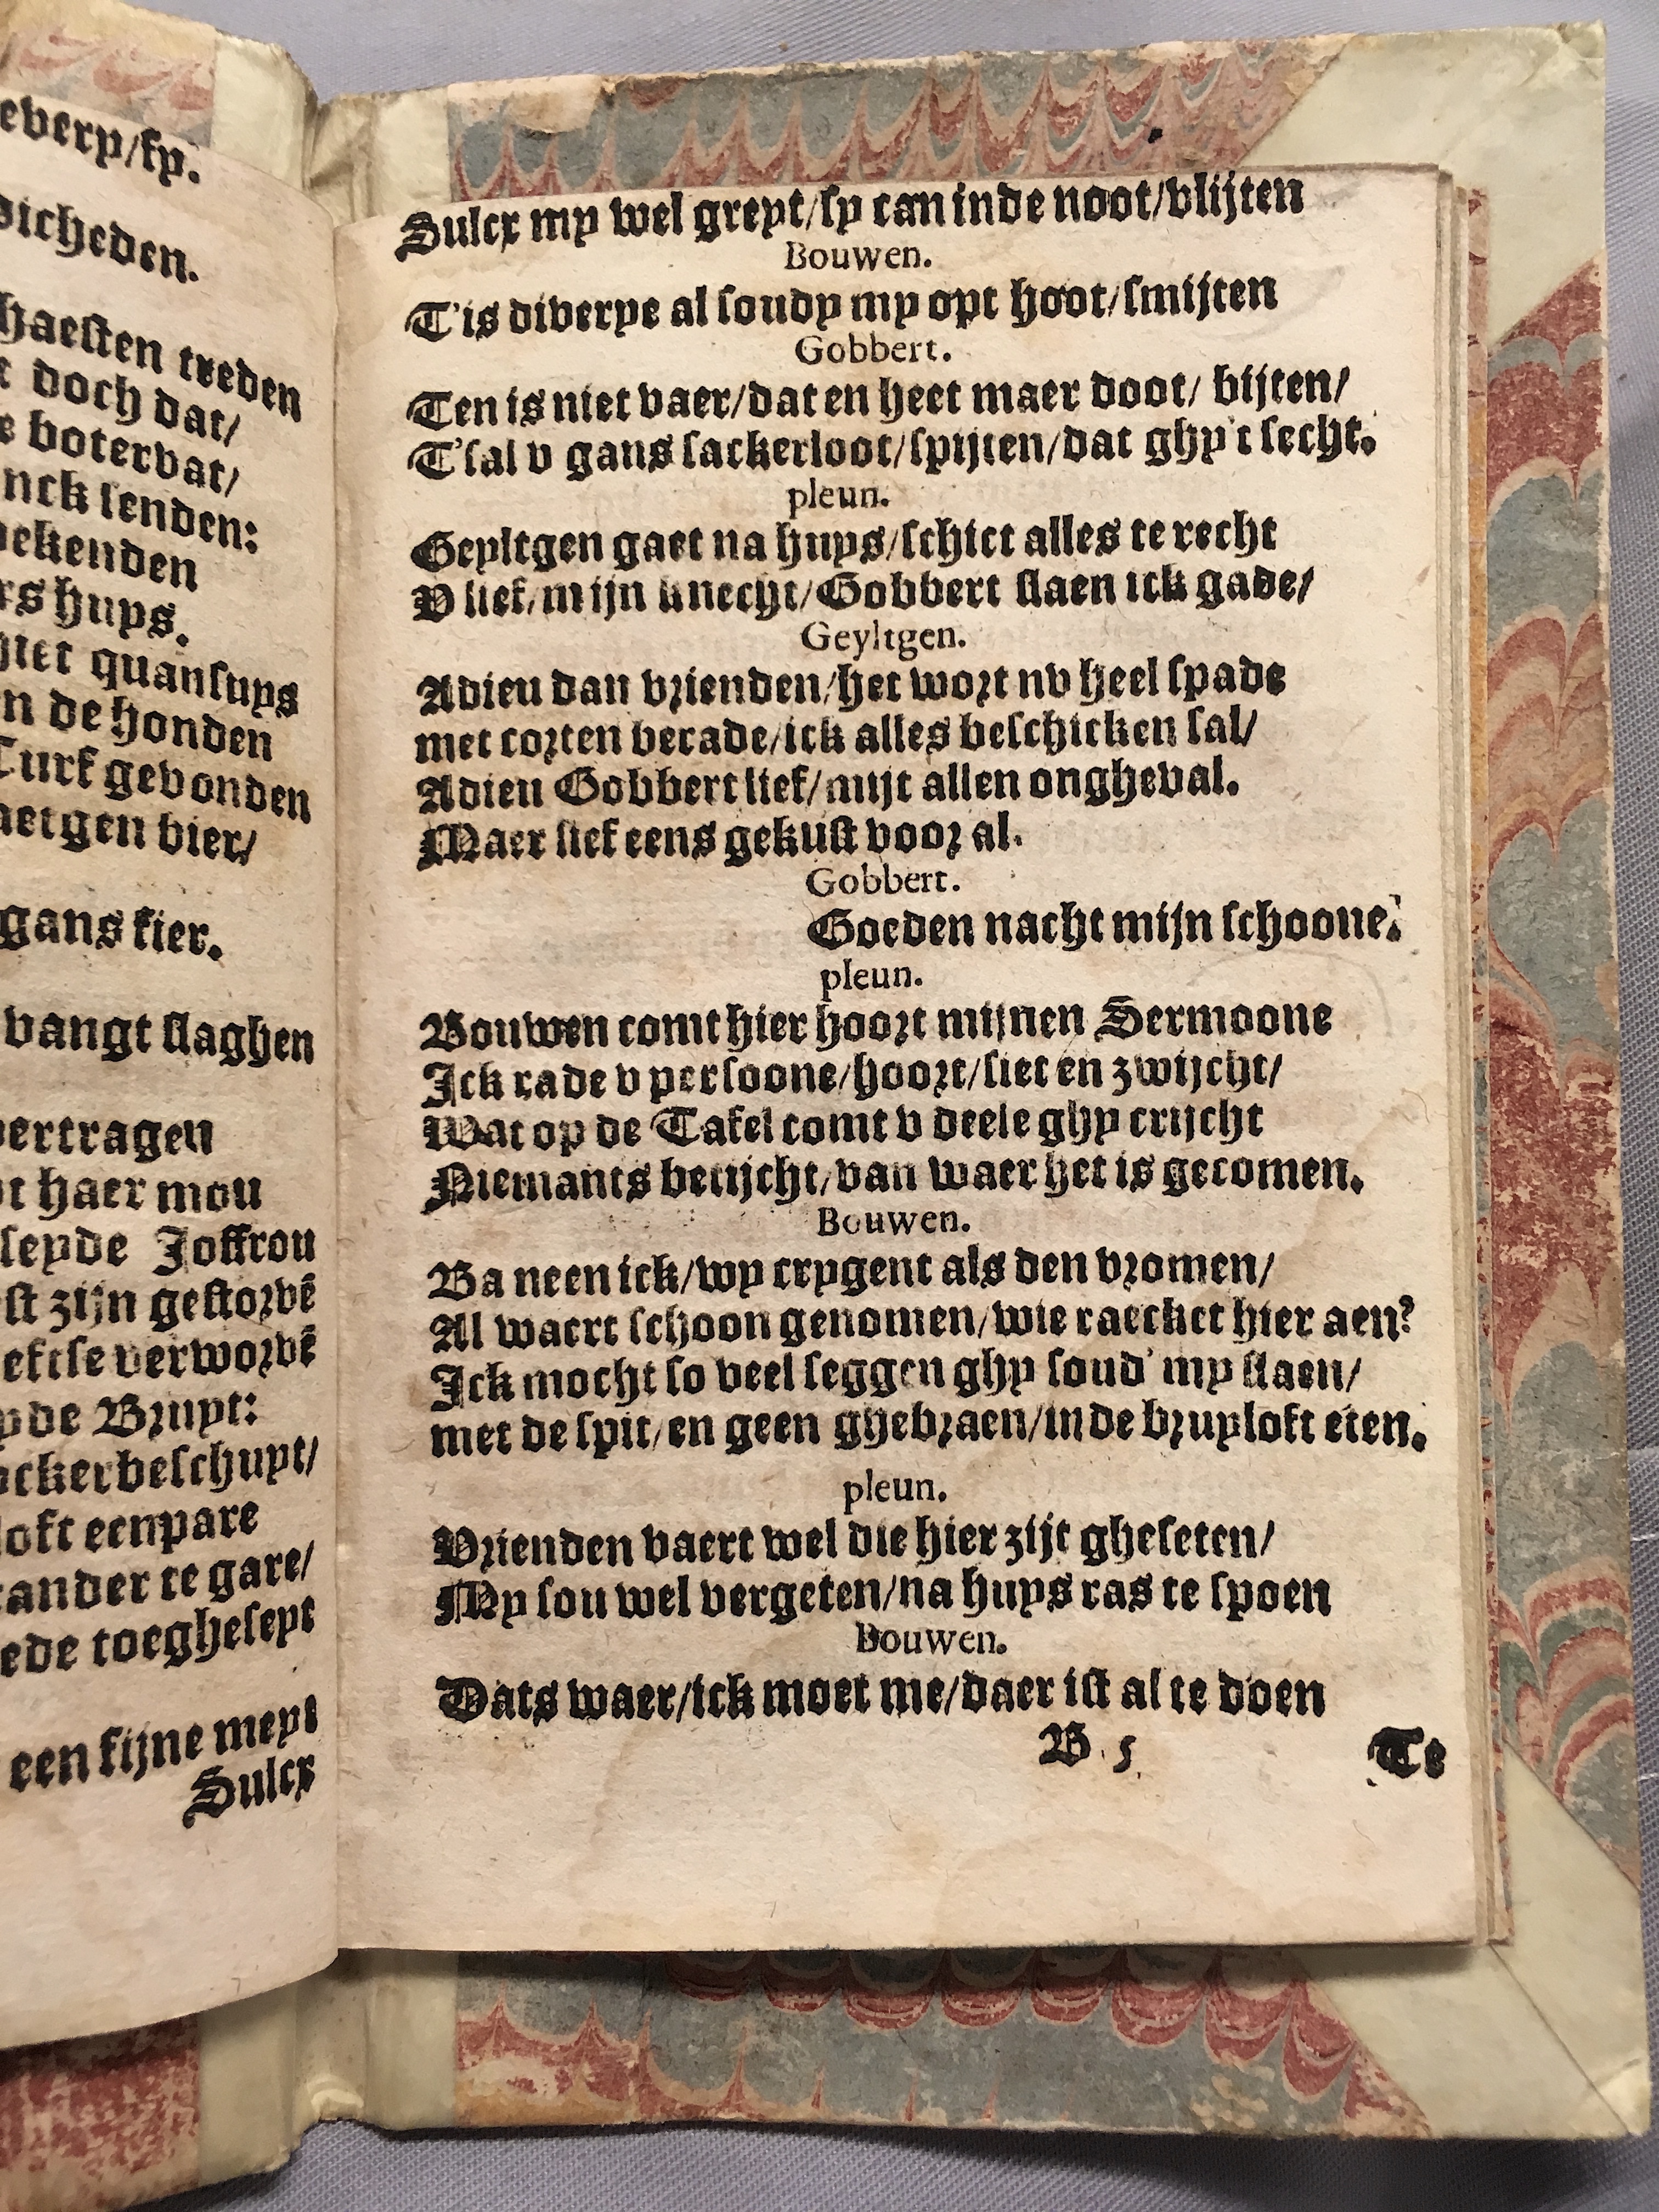 every/sy.
dicheden.
haesten treden
t doch dat/
e botervat/
nck senden:
bekenden
rs huys.
niet quansuys
n de honden
Turf gevonden
aetgen bier/
gans fier.
vangt slaghen
vertragen
ot haer mou
seyde Joffrou
st zijn gestorvē
eftse verworvē
yde Bruyt:
ackerbeschuyt/
loft eenpare
ander te gare/
ede toegheseyt
een fijne meyt
Sulcx
Sulcx my wel greyt/sy can inde noot/vlijten
Bouwen.
T'is diverye al soudy my opt hoot/smijten
Gobbert.
Ten is niet vaer/dat en heet maer doot/ bijten/
T'sal v gans sackerloot/spijten/dat ghy't secht.
pleun.
Geyltgen gaet na huys/schict alles te recht
V lief/mijn knecht/Gobbert slaen ick gade/
Geyltgen.
Adieu dan vrienden/het wort nv heel spade
met corten berade/ick alles beschicken sal/
Adieu Gobbert lief/mijt allen ongheval.
Maer lief eens gekust voor al.
Gobbert.
Goeden nacht mijn schoone.
pleun.
Bouwen comt hier hoort mijnen Sermoone
Ick rade v persoone/hoort/siet en zwijcht/
Wat op de Tafel comt v deele ghy crijcht
Niemants betijcht/van waer het is gecomen.
Bouwen.
Ba neen ick/wy crygent als den vromen/
Al waert schoon genomen/wie raecket hier aen?
Ick mocht so veel seggen ghy soud' my slaen/
met de spit/en geen ghebraen/in de bruyloft eten.
pleun.
Vrienden vaert wel die hier zijt gheseten/
My sou wel vergeten/na huys ras te spoen
Bouwen.
Dats waer/ick moet me/daer ist al te doen
B 5
Te